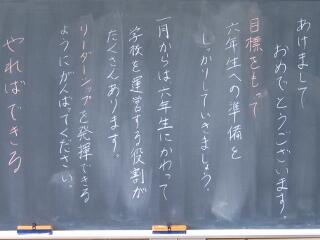 あけまして
おめでとうございます。
目標をもって
六年生への準備を
しっかりしていきましょう。
一月からは六年生にかわって
学校を運営する役割が
たくさんあります。
リーダーシップを発揮できる
ようにがんばてください。
やればできる